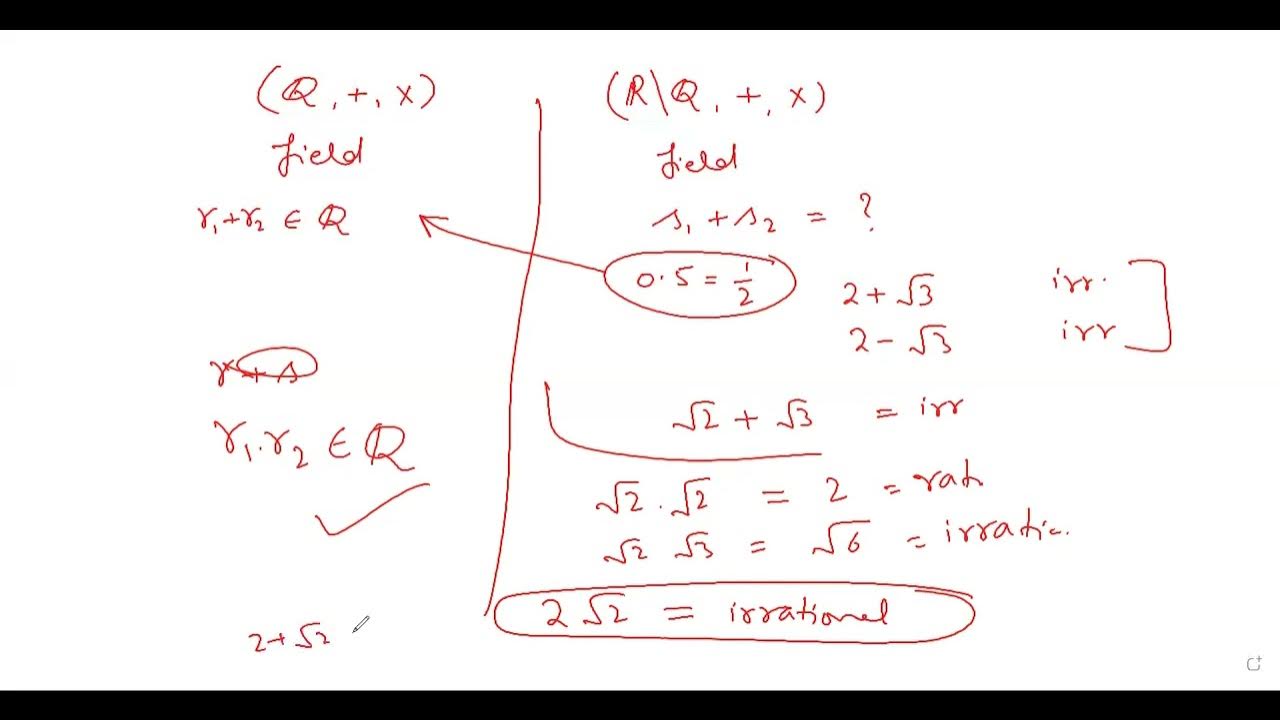 (ℚ, +, ×)
field
r₁+r₂ ∈ ℚ
r + s
r₁.r₂ ∈ ℚ
2+√2
(ℝ\ℚ, +, ×)
field
s₁ + s₂ = ?
0.5 = 1/2
2 + √3 irr.
2 - √3 irr
√2 + √3 = irr
√2 . √2 = 2 = rati
√2 √3 = √6 = irratio.
2√2 = irrational